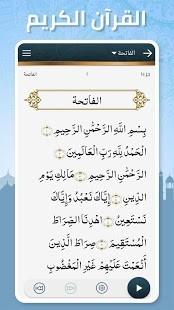 القرآن الكريم
الفاتحة
جزء ١
١
الفاتحة
الفاتحة
بِسْمِ اللَّهِ الرَّحْمَٰنِ الرَّحِيمِ
الْحَمْدُ لِلَّهِ رَبِّ الْعَالَمِينَ
الرَّحْمَٰنِ الرَّحِيمِ مَالِكِ يَوْمِ
الدِّينِ إِيَّاكَ نَعْبُدُ وَإِيَّاكَ
نَسْتَعِينُ اهْدِنَا الصِّرَاطَ
الْمُسْتَقِيمَ صِرَاطَ الَّذِينَ
أَنْعَمْتَ عَلَيْهِمْ غَيْرِ الْمَغْضُوبِ